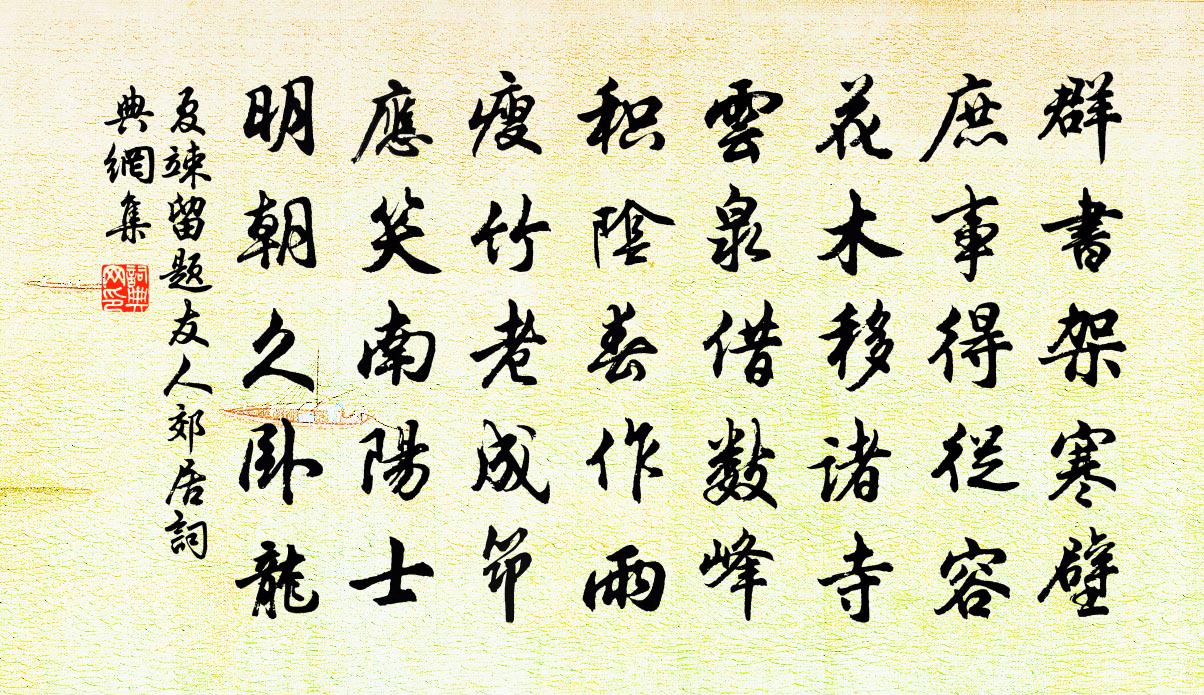 群書架寒壁
庶事得從容
花木移諸寺
雲泉借數峰
积陰春作雨
瘦竹老成筇
應笑南陽士
明朝久卧龍
夏竦留题友人郊居詞
典網集
詞典
网印